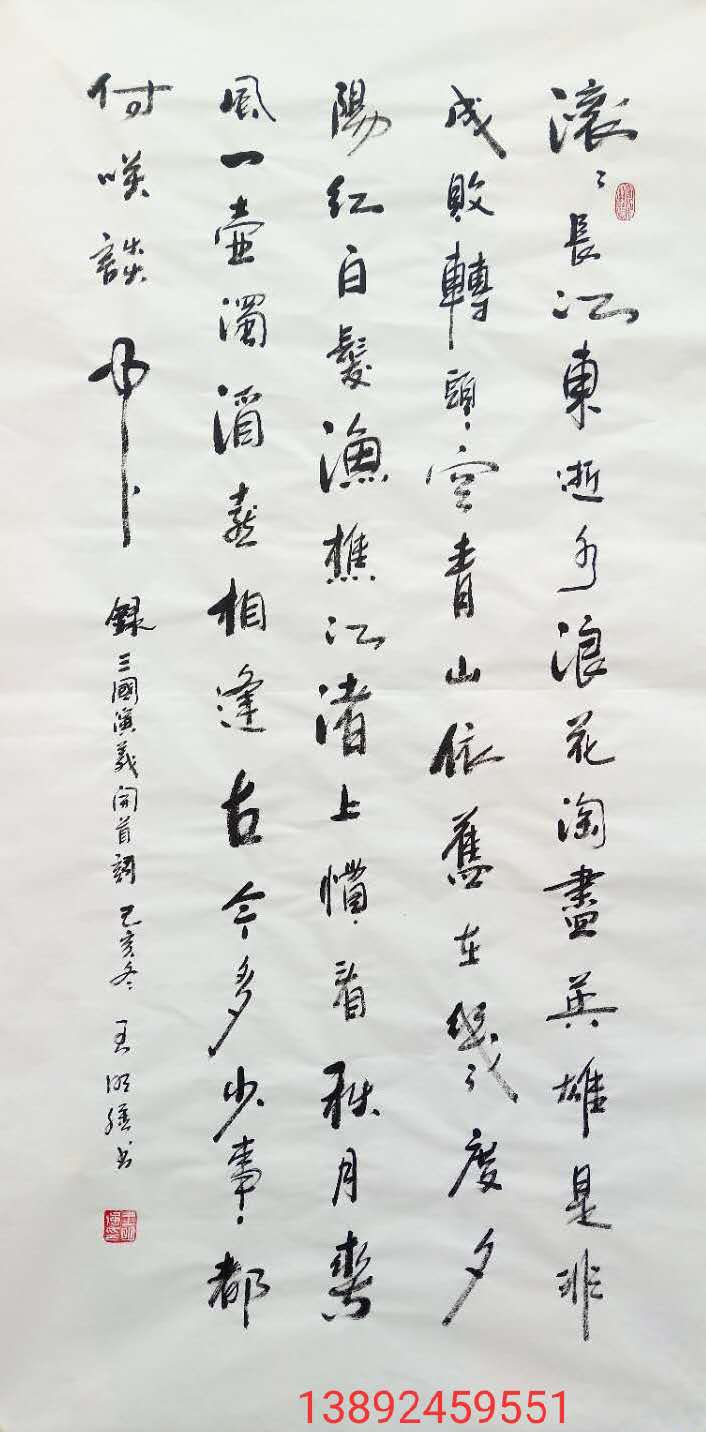 滾〻長江東逝水浪花淘盡英雄是非
成敗轉頭空青山依舊在幾度夕
陽紅白髮漁樵江渚上慣看秋月春
風一壺濁酒喜相逢古今多少事都
付咲談中
錄三國演義開首詞 己亥冬 王明书
13892459551